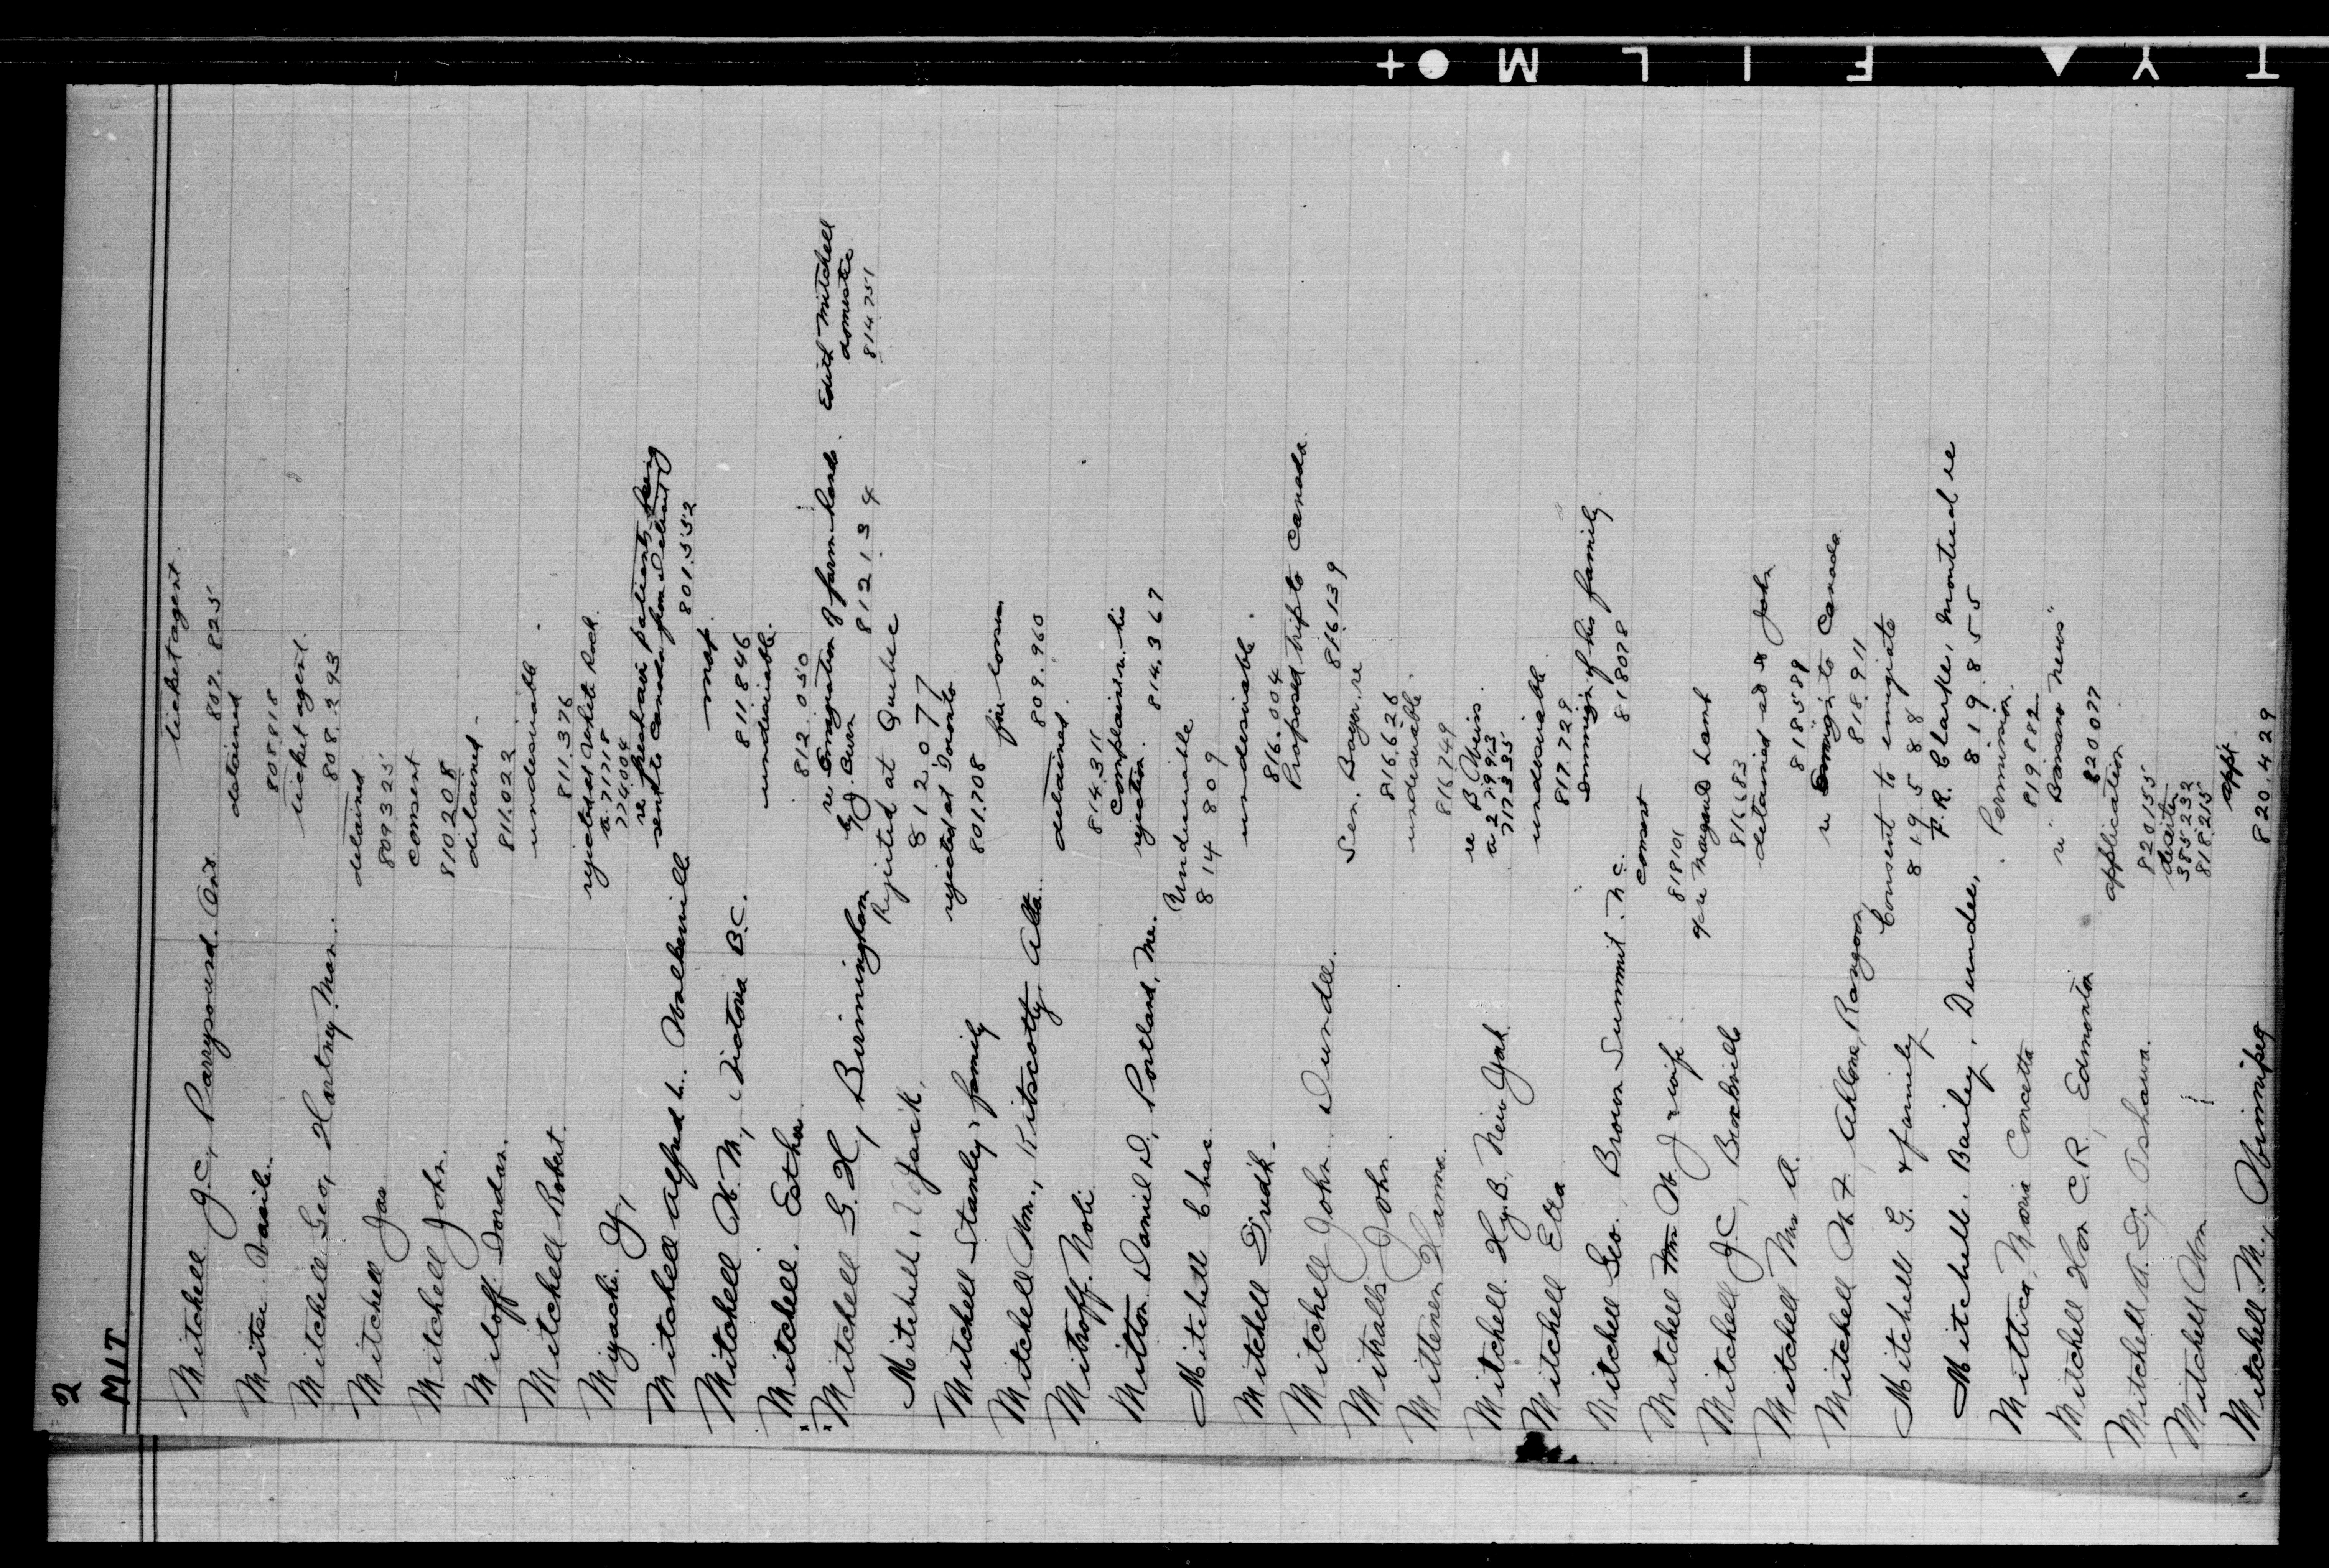 2
MIT
Mitchell J.C., Parrysound. Ont. ticket agent.
807 825
Mitze Vasile. detained
808 818
Mitchell Geo, Hartney. Man. ticket agent.
808.293
Mitchell Jas detained
809325
Mitchell John. consent
810208
Mitoff Iordan. detained.
811.022
Mitchell Robert. undesirable.
811.376
Miyachi. Y, rejected at White Rock.
a. 717 18
774004
Mitchell Alfred L. Walkerville re patients being
sent to Canada from Detroit
801.552
Mitchell W. M., Victoria B.C. map.
811846
Mitchell. Esther. undesirable.
812.050
Mitchell G. H, Birmingham re Emigration of farm hands. Edith Mitchell
by J. Curn 812134 domestic
814751
Mitchell, Jack, Rejected at Quebec
812077
Mitchell Stanley & family rejected at Toronto
801.708
Mitchell Wm., Kitscotty, Alta. fire losses
809.960
Mitroff. Noli detained.
814.311
Mitton Daniel D, Portland, Me. complaint re his
rejection. 814.367
Mitchell Chas. Undesirable
814809
Mitchell Fred'k. undesirable.
816.004
Mitchell John. Dundee. Proposed trip to Canada.
816.139
Mitralls John. Sen. Boyer re
816.626
Mittenen Hanna. undesirable.
816749
Mitchell. Hy. B, New York re B Weiss.
a 279913
717395
Mitchell Etta undesirable.
817.729
Mitchell Geo. Brown Summit. N.C. Immig'n of his family
818078
Mitchell W. J & wife. consent
818101
Mitchell J.C, Brockville re Margaret Lamb
816683
Mitchell Mrs A. detained as to John
818589
Mitchell W F, Ahlone, Rangoon, re Immig'n to Canada
818.911
Mitchell G. & family Consent to emigrate
819588
Mitchell. Bailey, Dundee, F.R. Clarke, Montreal re
819855
Mittica, Maria Concetta Permission.
819.882
Mitchell Hon C.R, Edmonton re "Bassano News"
820077
Mitchell A. D, Oshawa. application
820155
Mitchell Wm
385232
818.215
Mitchell M., Winnipeg appt.
820.429
+ M L I F Y T